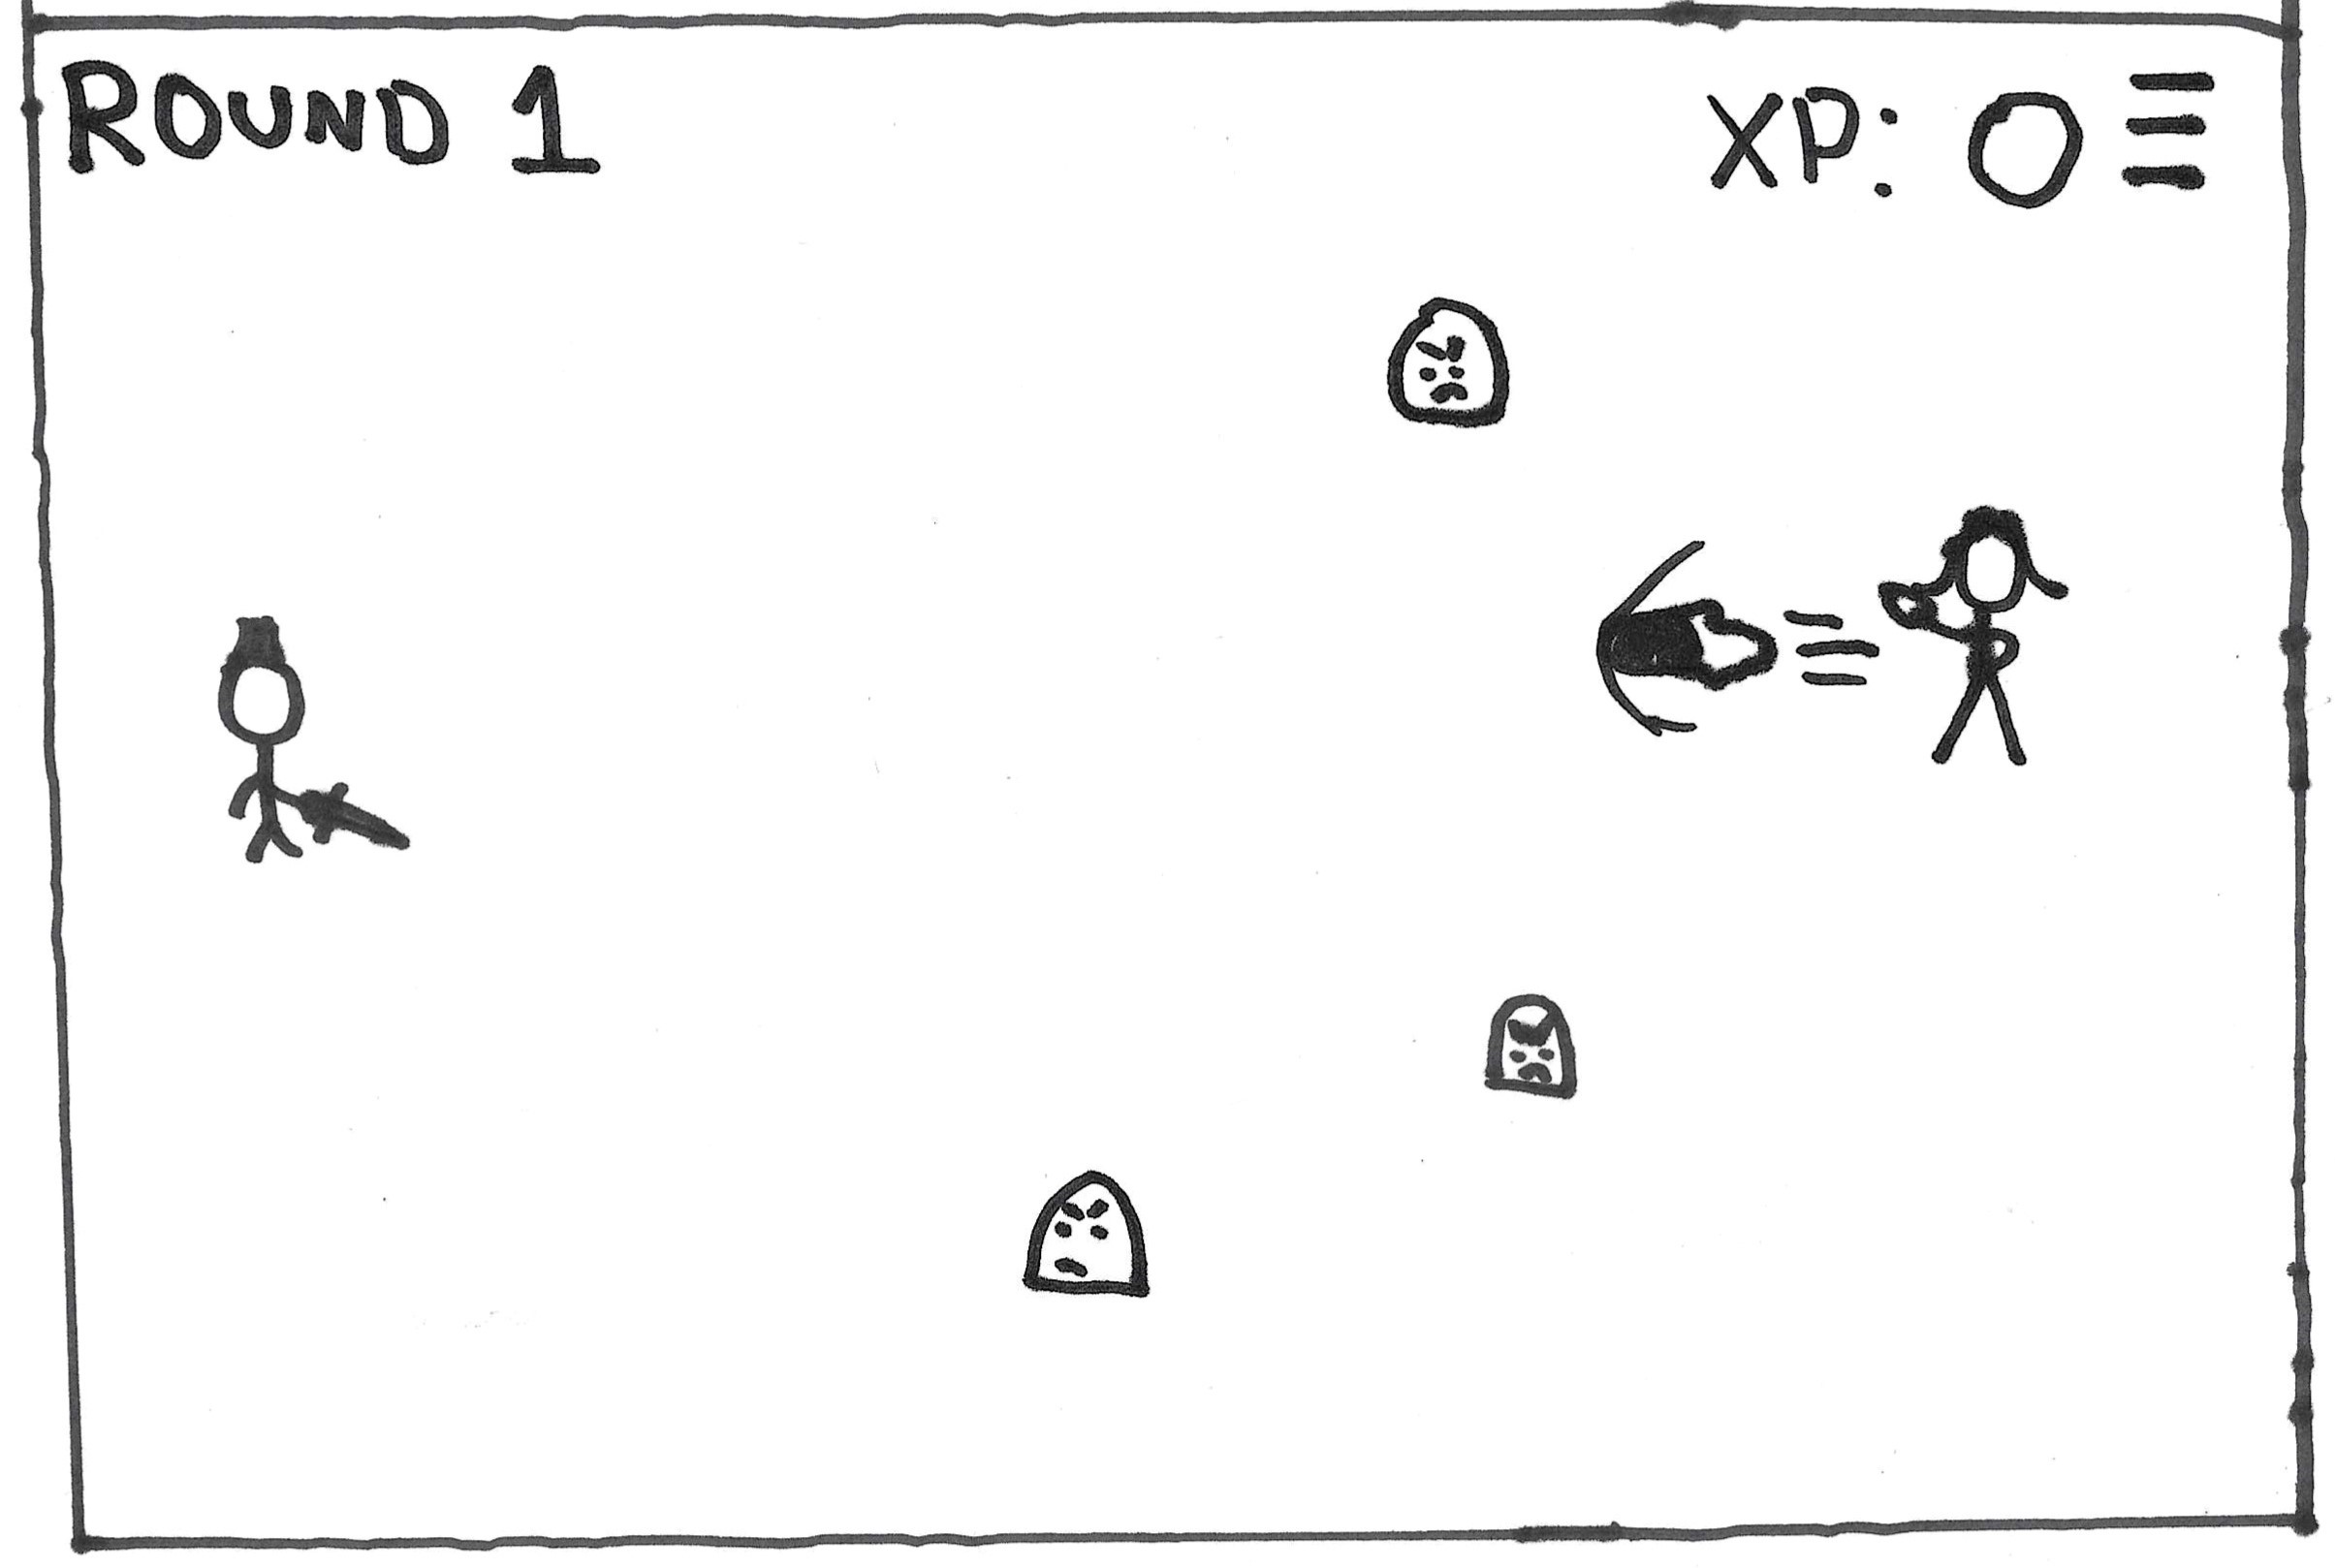 ROUND 1
XP: 0